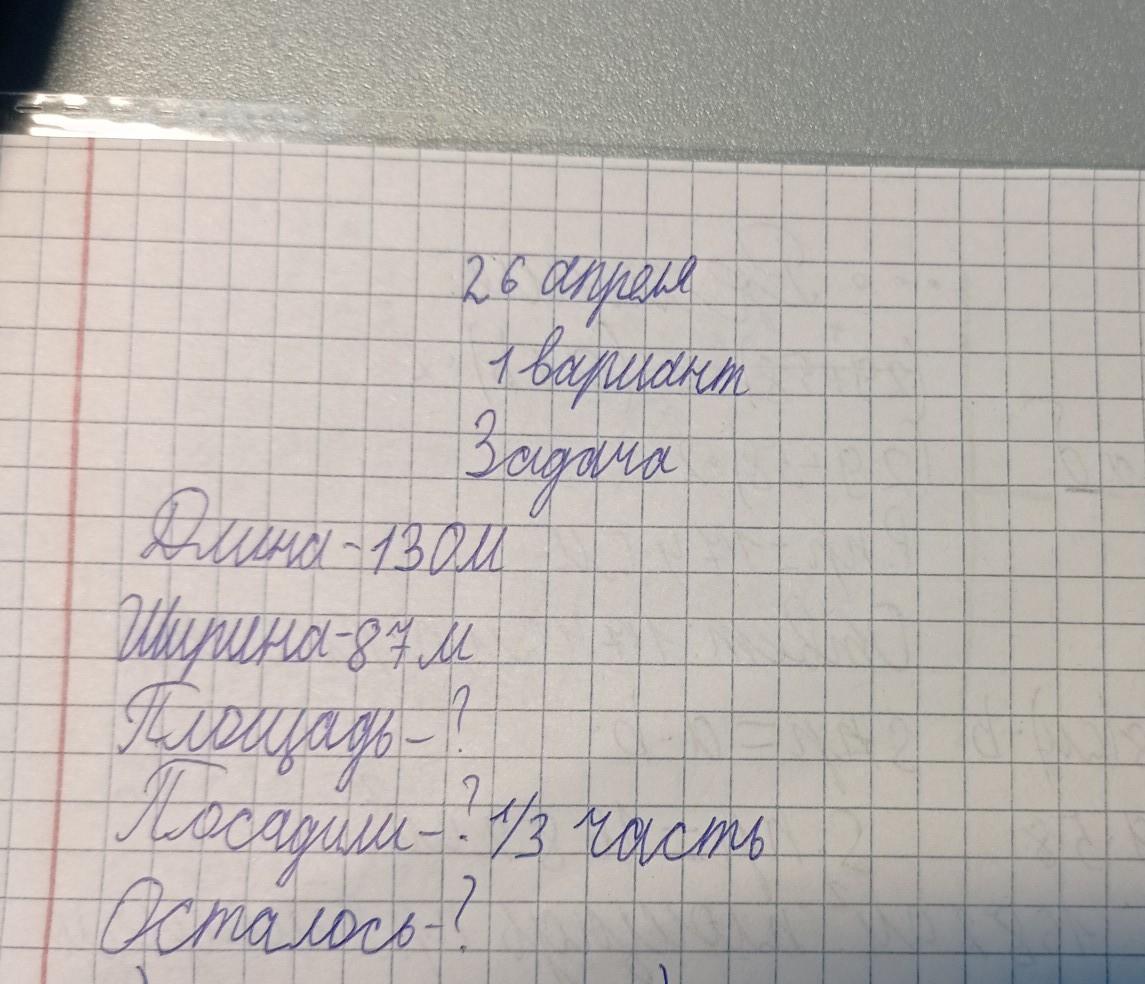 26 апреля
1 вариант
Задача
Длина-130м
Ширина-87м
Площадь-?
Посадили-? 1/3 часть
Осталось-?